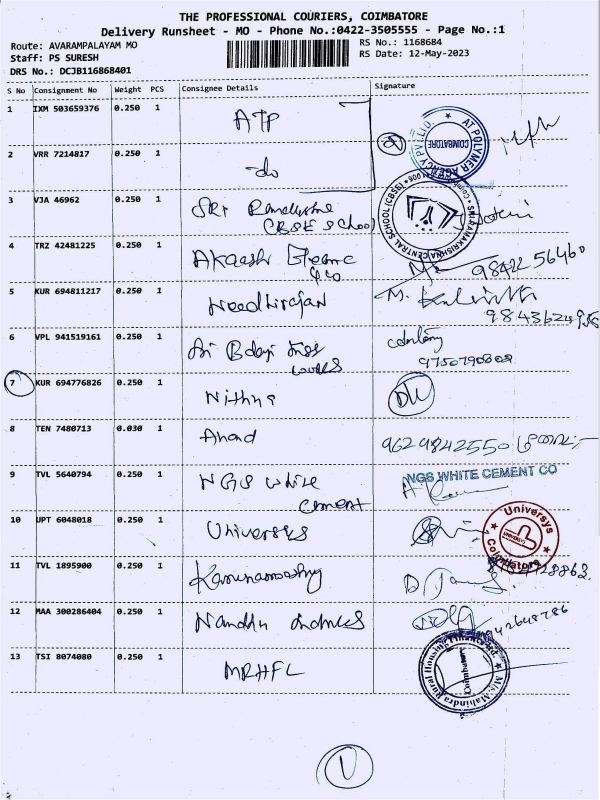 THE PROFESSIONAL COURIERS, COIMBATORE
Delivery Runsheet - MO - Phone No.:0422-3505555 - Page No.:1
Route: AVARAMPALAYAM MO
RS No.: 1168684
Staff: PS SURESH
RS Date: 12-May-2023
DRS No.: DCJB116868401
S No Consignment No Weight PCS Consignee Details Signature
1 IXM 503659376 0.250 1 ATP
AT POLYMER AGENCY PVT. LTD. COIMBATORE
2 VRR 7214817 0.250 1 do
3 VJA 46962 0.250 1 SRI
CBSE School
SRI RAMAKRISHNA CENTRAL SCHOOL (CBSE)
4 TRZ 42481225 0.250 1 Akaash
98422 56460
5 KUR 694811217 0.250 1 Needhirajan M.
6 VPL 941519161 0.250 1 Sri
9750790802
7 KUR 694776826 0.250 1 Nithya
8 TEN 7480713 0.030 1 Anand 9629842550
9 TVL 5640794 0.250 1 NGS white
cement
NGS WHITE CEMENT CO
10 UPT 6048018 0.250 1 Universys
Universys Coimbatore
11 TVL 1895900 0.250 1
12 MAA 300286404 0.250 1 Nandhu
13 TSI 8074080 0.250 1 MRHFL
M/s. Mahindra Rural Housing Finance Ltd. Coimbatore